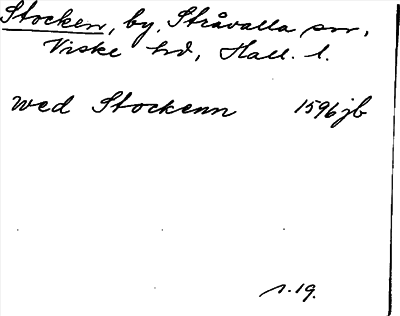 Stocken, by, Stråvalla sn,
Viske hd, Hall. l.
wed Stockenn 1596 jb
s. 19.